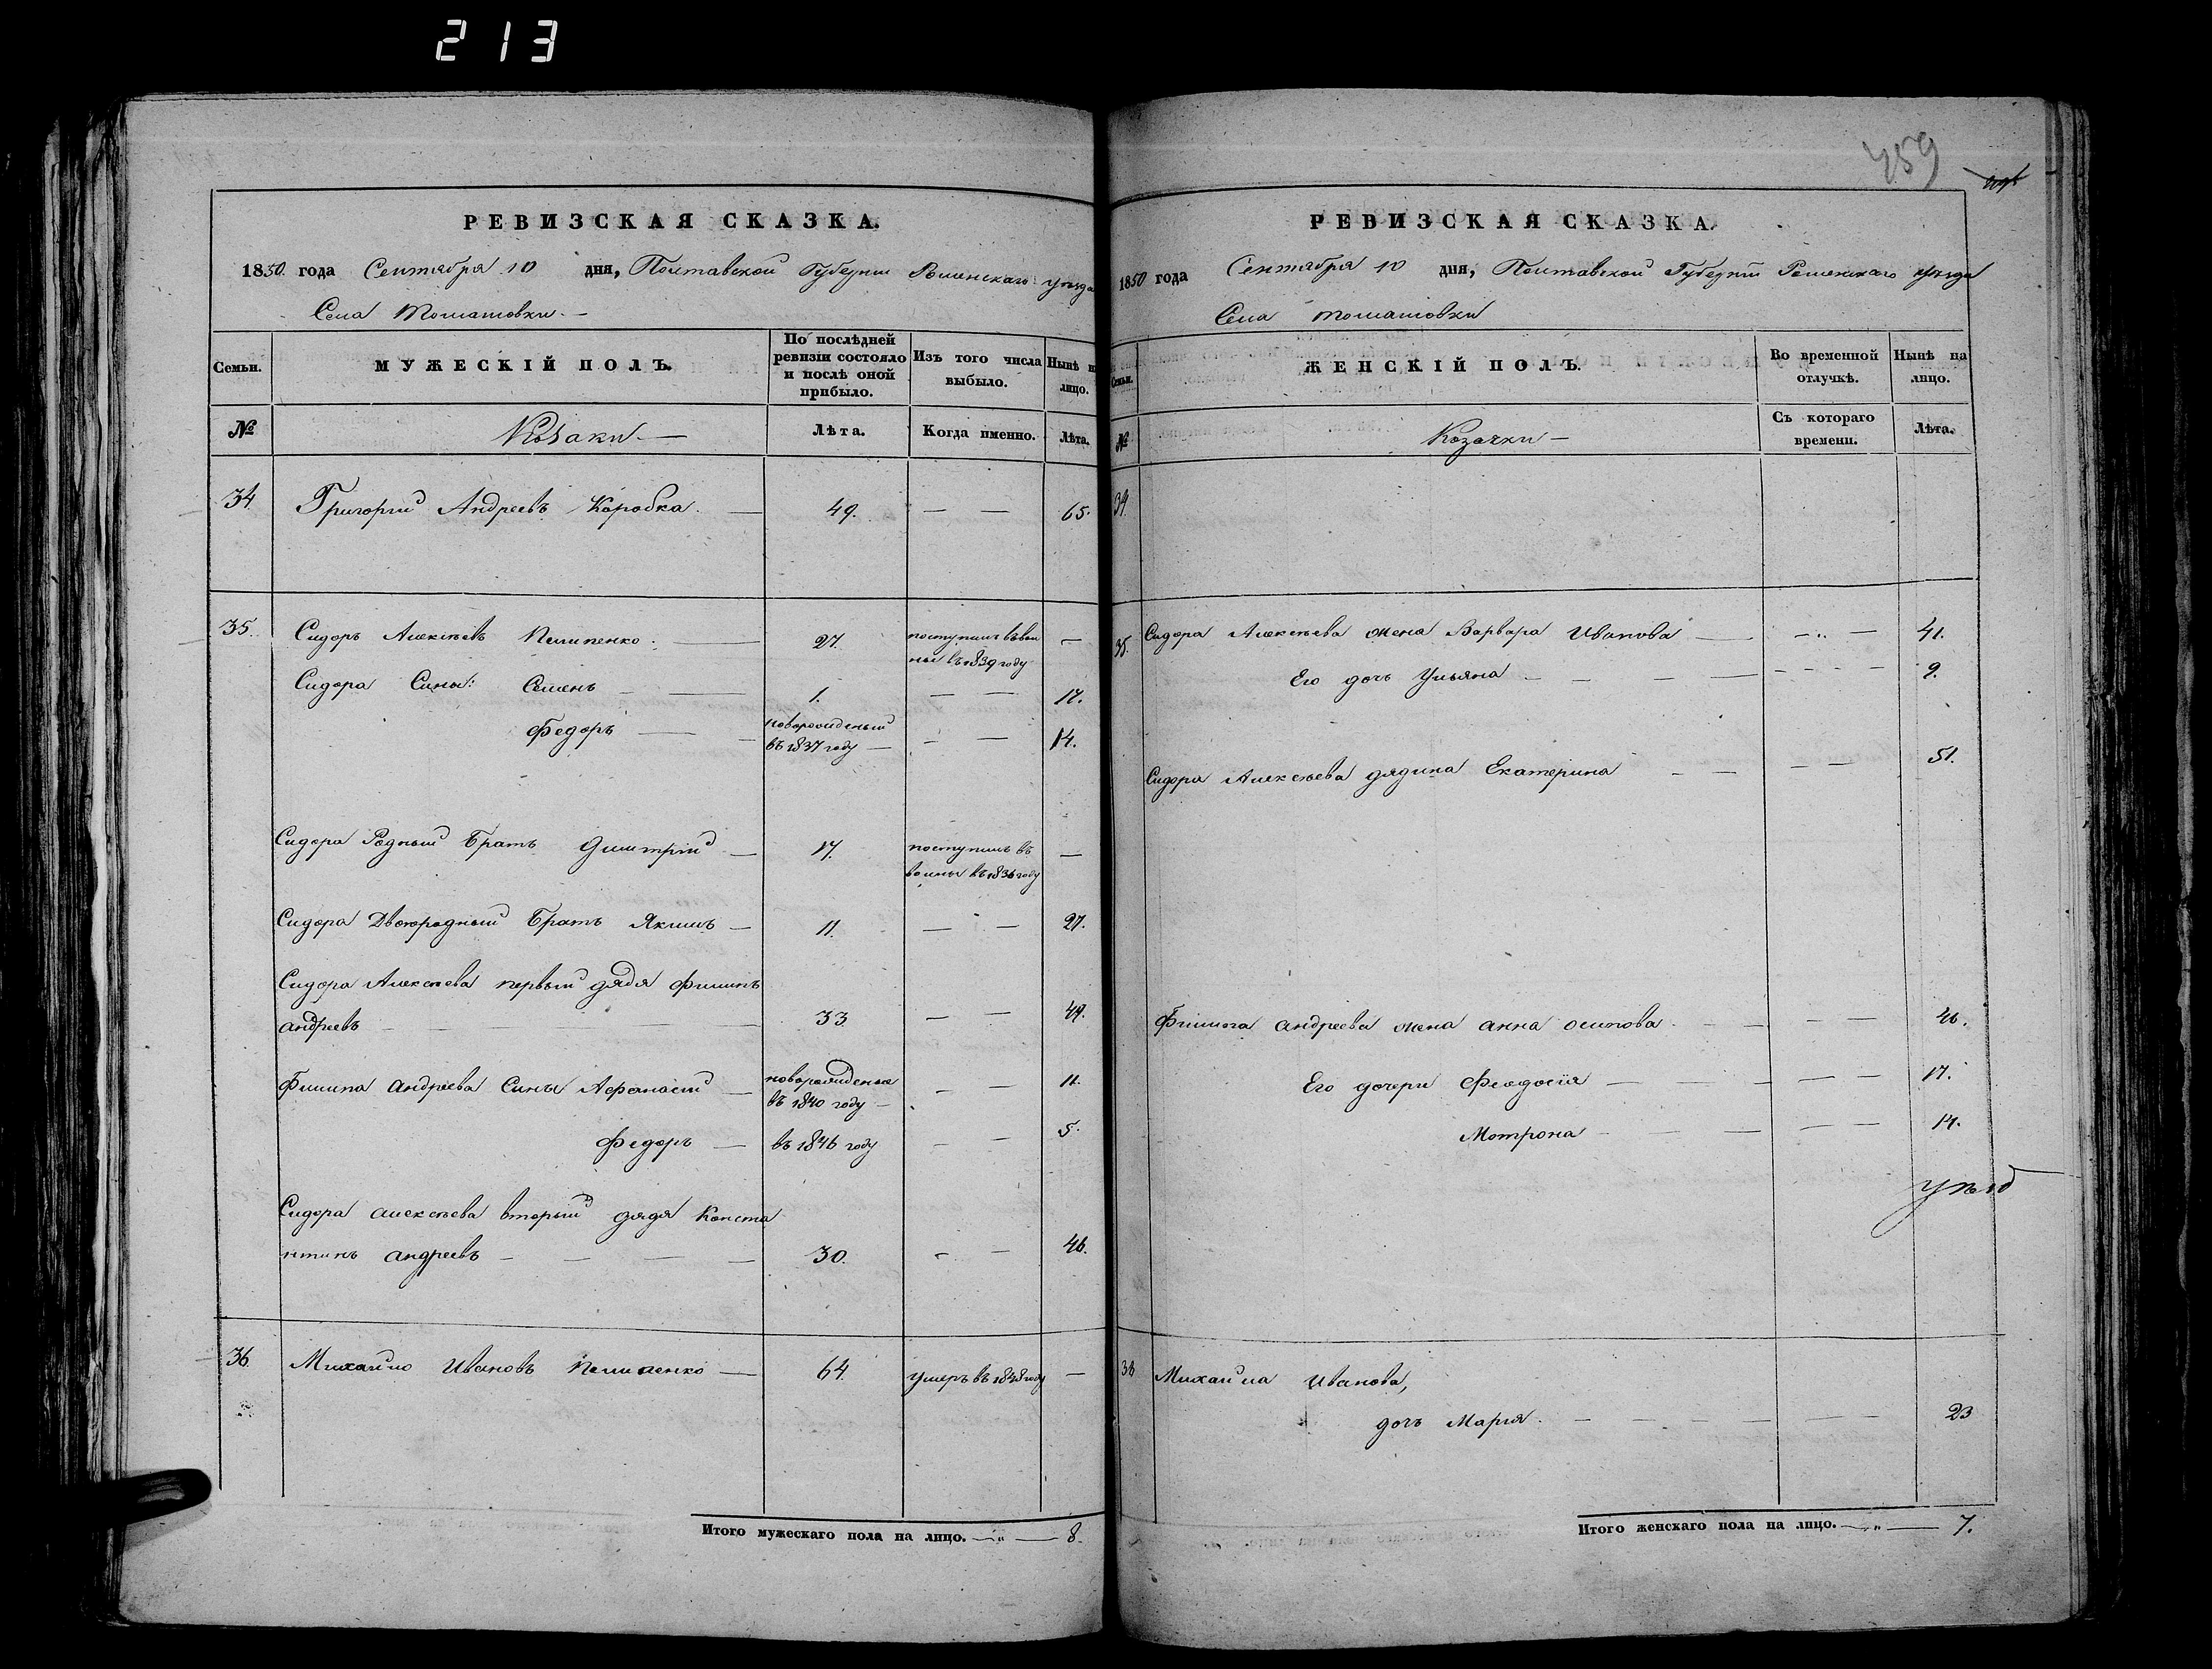 213
РЕВИЗСКАЯ СКАЗКА.
1850 года Сентября 10 дня, Полтавской Губерніи Роменскаго уезда
Села Томашовки. —
Семьи. МУЖЕСКІЙ ПОЛЪ. По послѣдней ревизіи состояло и послѣ оной прибыло. Изъ того числа выбыло. Нынѣ на лицо.
№ Козаки — Лѣта. Когда именно. Лѣта.
34 Григорий Андреевъ Коробка. — 49. — — 65.
35. Сидоръ Алексѣевъ Пилипенко. — 27. поступилъ въ вои
ны въ 1839 году —
Сидора Сины: Семенъ — — 1. — — 17.
Федоръ — — новорожденый
въ 1837 году — — — 14.
Сидора Родный Братъ Дмитрій — 17. поступилъ въ
воины въ 1836 году —
Сидора Двоюродный Братъ Якимъ — 11. — — 27.
Сидора Алексѣева первый дядя Филипъ
андреевъ — — — — 33 — — 49.
Филипа андреева Сины Афанасій — новорожденые
въ 1840 году — — — 11.
Федоръ — въ 1846 году — — 5.
Сидора алексѣева вторый дядя Конста
нтинъ андреевъ — — — — 30. — — 46.
36. Михайло Ивановъ Пилипенко — 64. умеръ въ 1848 году —
Итого мужескаго пола на лицо. — „ — 8.
459
РЕВИЗСКАЯ СКАЗКА.
1850 года Сентября 10 дня, Полтавской Губерніи Роменскаго уезда
Села Томашовки
Семьи. ЖЕНСКІЙ ПОЛЪ. Во временной отлучкѣ. Нынѣ на лицо.
№ Козачки — Съ котораго времени. Лѣта.
34.
35. Сидора Алексѣева жена Варвара Иванова — — „ — 41.
Его дочь Ульяна — — — — — — — 9.
Сидора Алексѣева дядина Екатерина — — — — 51.
Филипа андреева жена анна осипова. — — — — 46.
Его дочери Феодосія — — — — — — 17.
Мотрона — — — — — — 14.
36 Михайла Иванова,
дочь Марія. — — — — — — 23
Итого женскаго пола на лицо. — „ — 7.